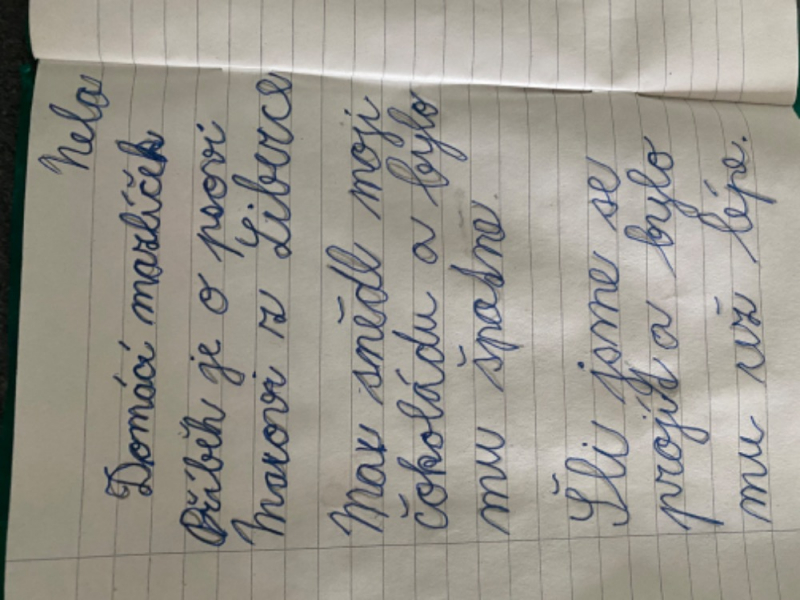 Nela
Domácí mazlíček
Příběh je o psovi
Maxovi z Liberce
Max snědl moji
čokoládu a bylo
mu špatne.
Šli jsme se
projít a bylo
mu už lépe.